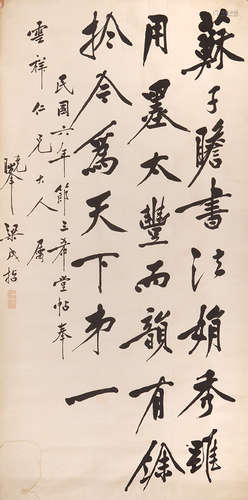 蘇子瞻書法娟秀雖
用墨太豐而韻有餘
於今為天下第一
民國六年節三希堂帖奉
雲祥仁兄大人屬
梁成哲